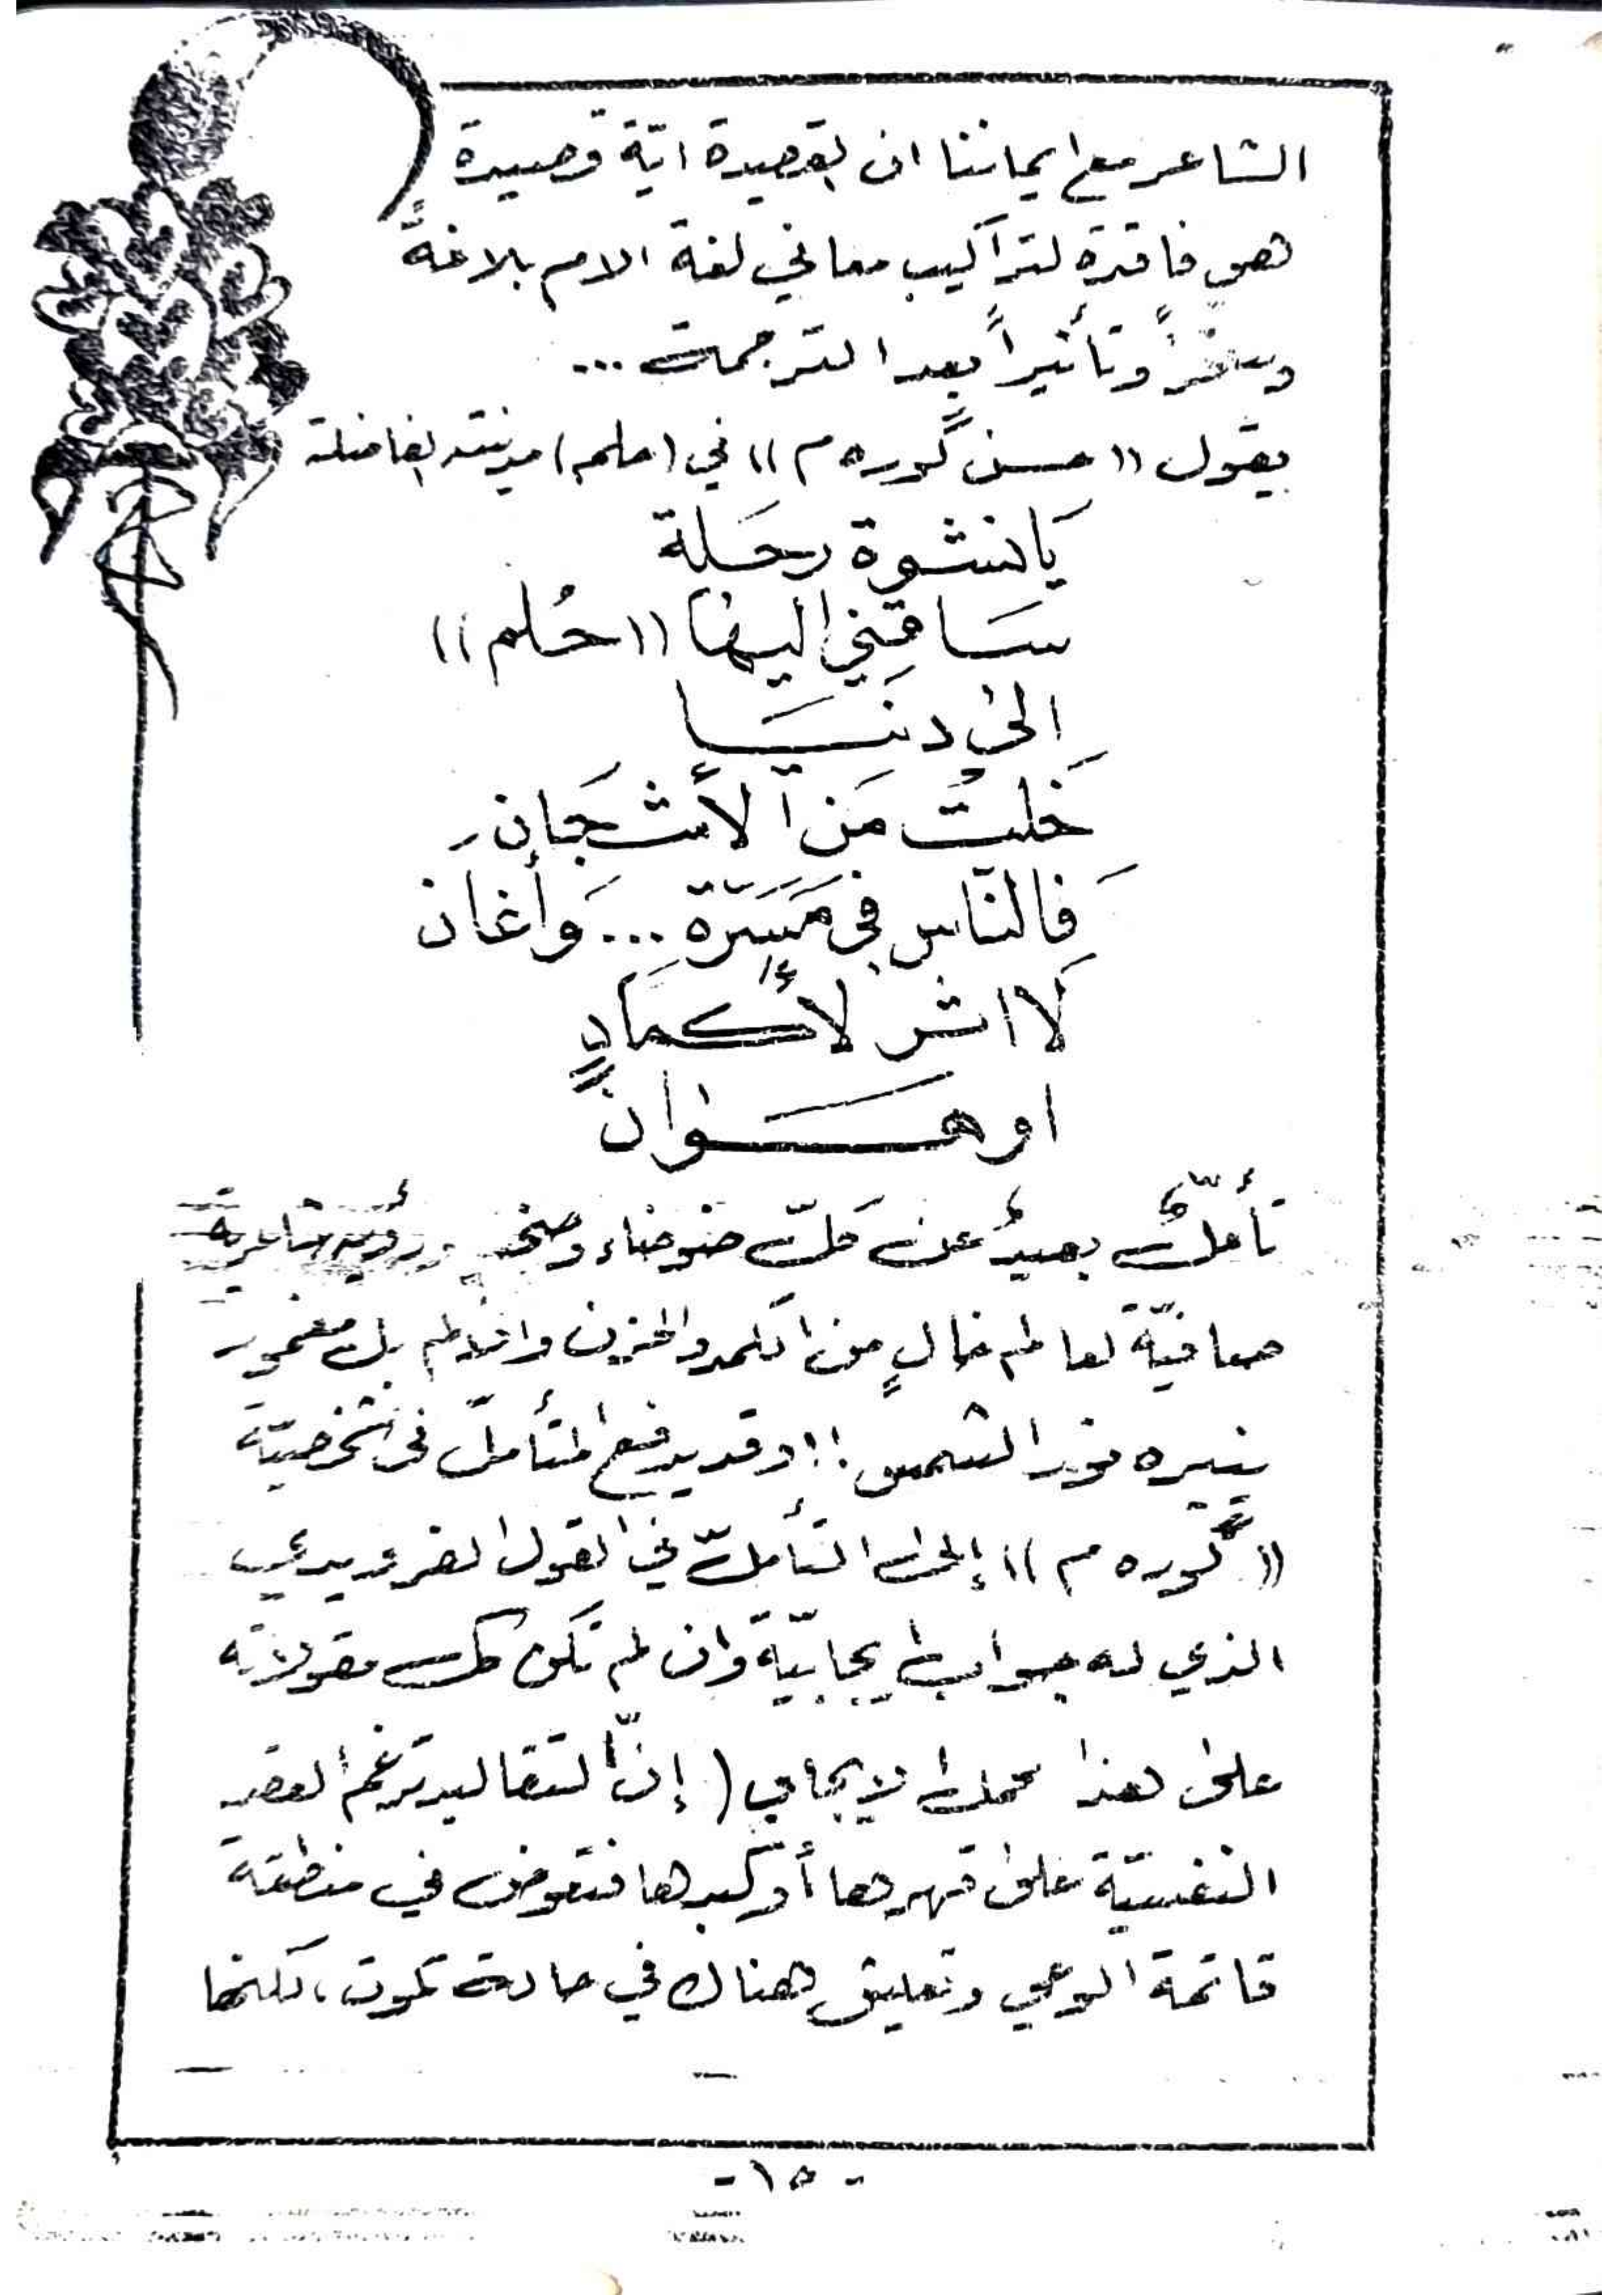 الشاعر مع ايماننا ان القصيدة ايّة قصيدة
هي فاقدة لتراكيب معاني لغة الام بلاغةً
وتأثيراً بعد الترجمة ...
يقول ((حسن گوره م)) في (حلم) مدينته الفاضلة
يَا لنشوة رحَلة
سَاقتِني اليهَا ((حُلم))
الىٰ دنيَا
خَلتْ مَن الأشجَانِ
فَالنّاسِ فِي مَسَرّةٍ ... وَأغان
لَا اثر لأكمَادٍ
او هَوَان
تأمّلٌ بعيدٌ عن كلّ ضوضاء وصخب ورؤية شاعرية
صافيّة لعالم خالٍ من الكمد والحزن والظلم بل مغمور
ينيره نور الشمس !! وقد يدفع المتأملّ في شخصيّة
((گوره م)) إلى التأملّ في القول الفرويدي
الذي له جوانب ايجابيّة وان لم تكن كل مقولاته
على هذا المحمل الايجابي (إنّ التقاليد ترغم العقد
النفسيّة على قهرها أو كبدها فتغوص في منطقة
قاتمة الوعي وتعليق هناك في حالة كموت، لكنها
- ١٥ -